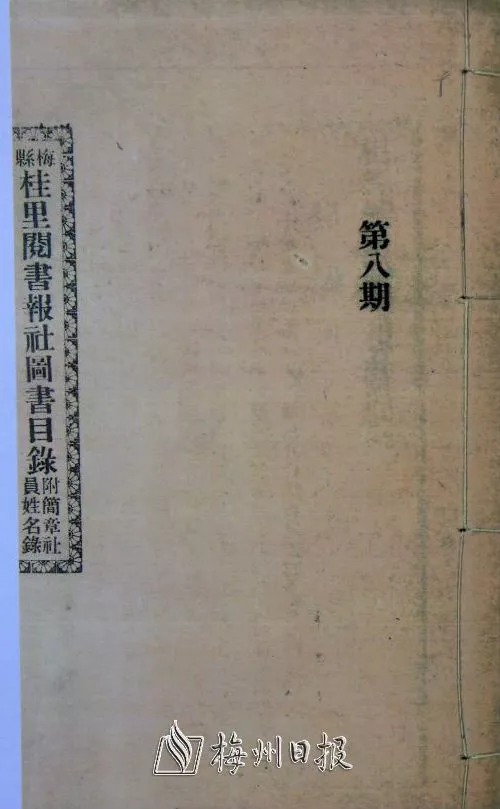 第八期
梅縣
桂里閱書報社圖書目錄
附簡章社
員姓名錄
梅州日报